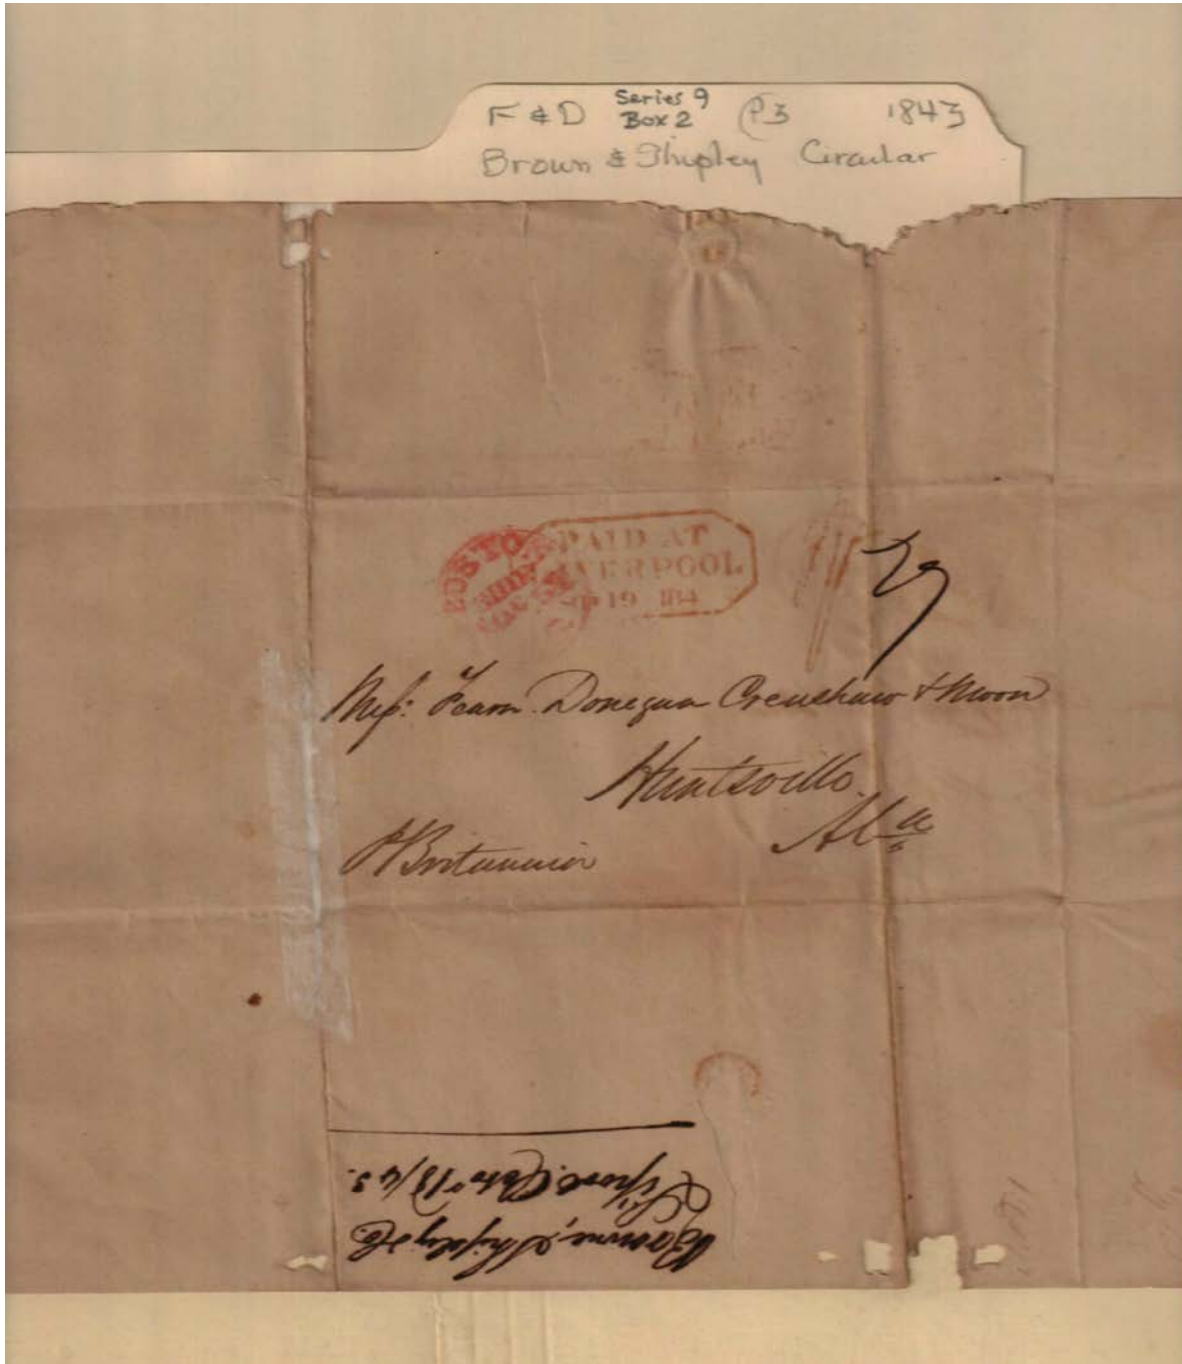 F & D Series 9 Box 2 P3 1843
Brown & Shipley Circular
BOSTON
SHIP
PAID AT
LIVERPOOL
19 184
27
Mess: Fearn Donegan Crenshaw & Moon
Huntsville
Ala
P Britannia
Browne, Shipley & Co.
Lipool. Octo 18/43.